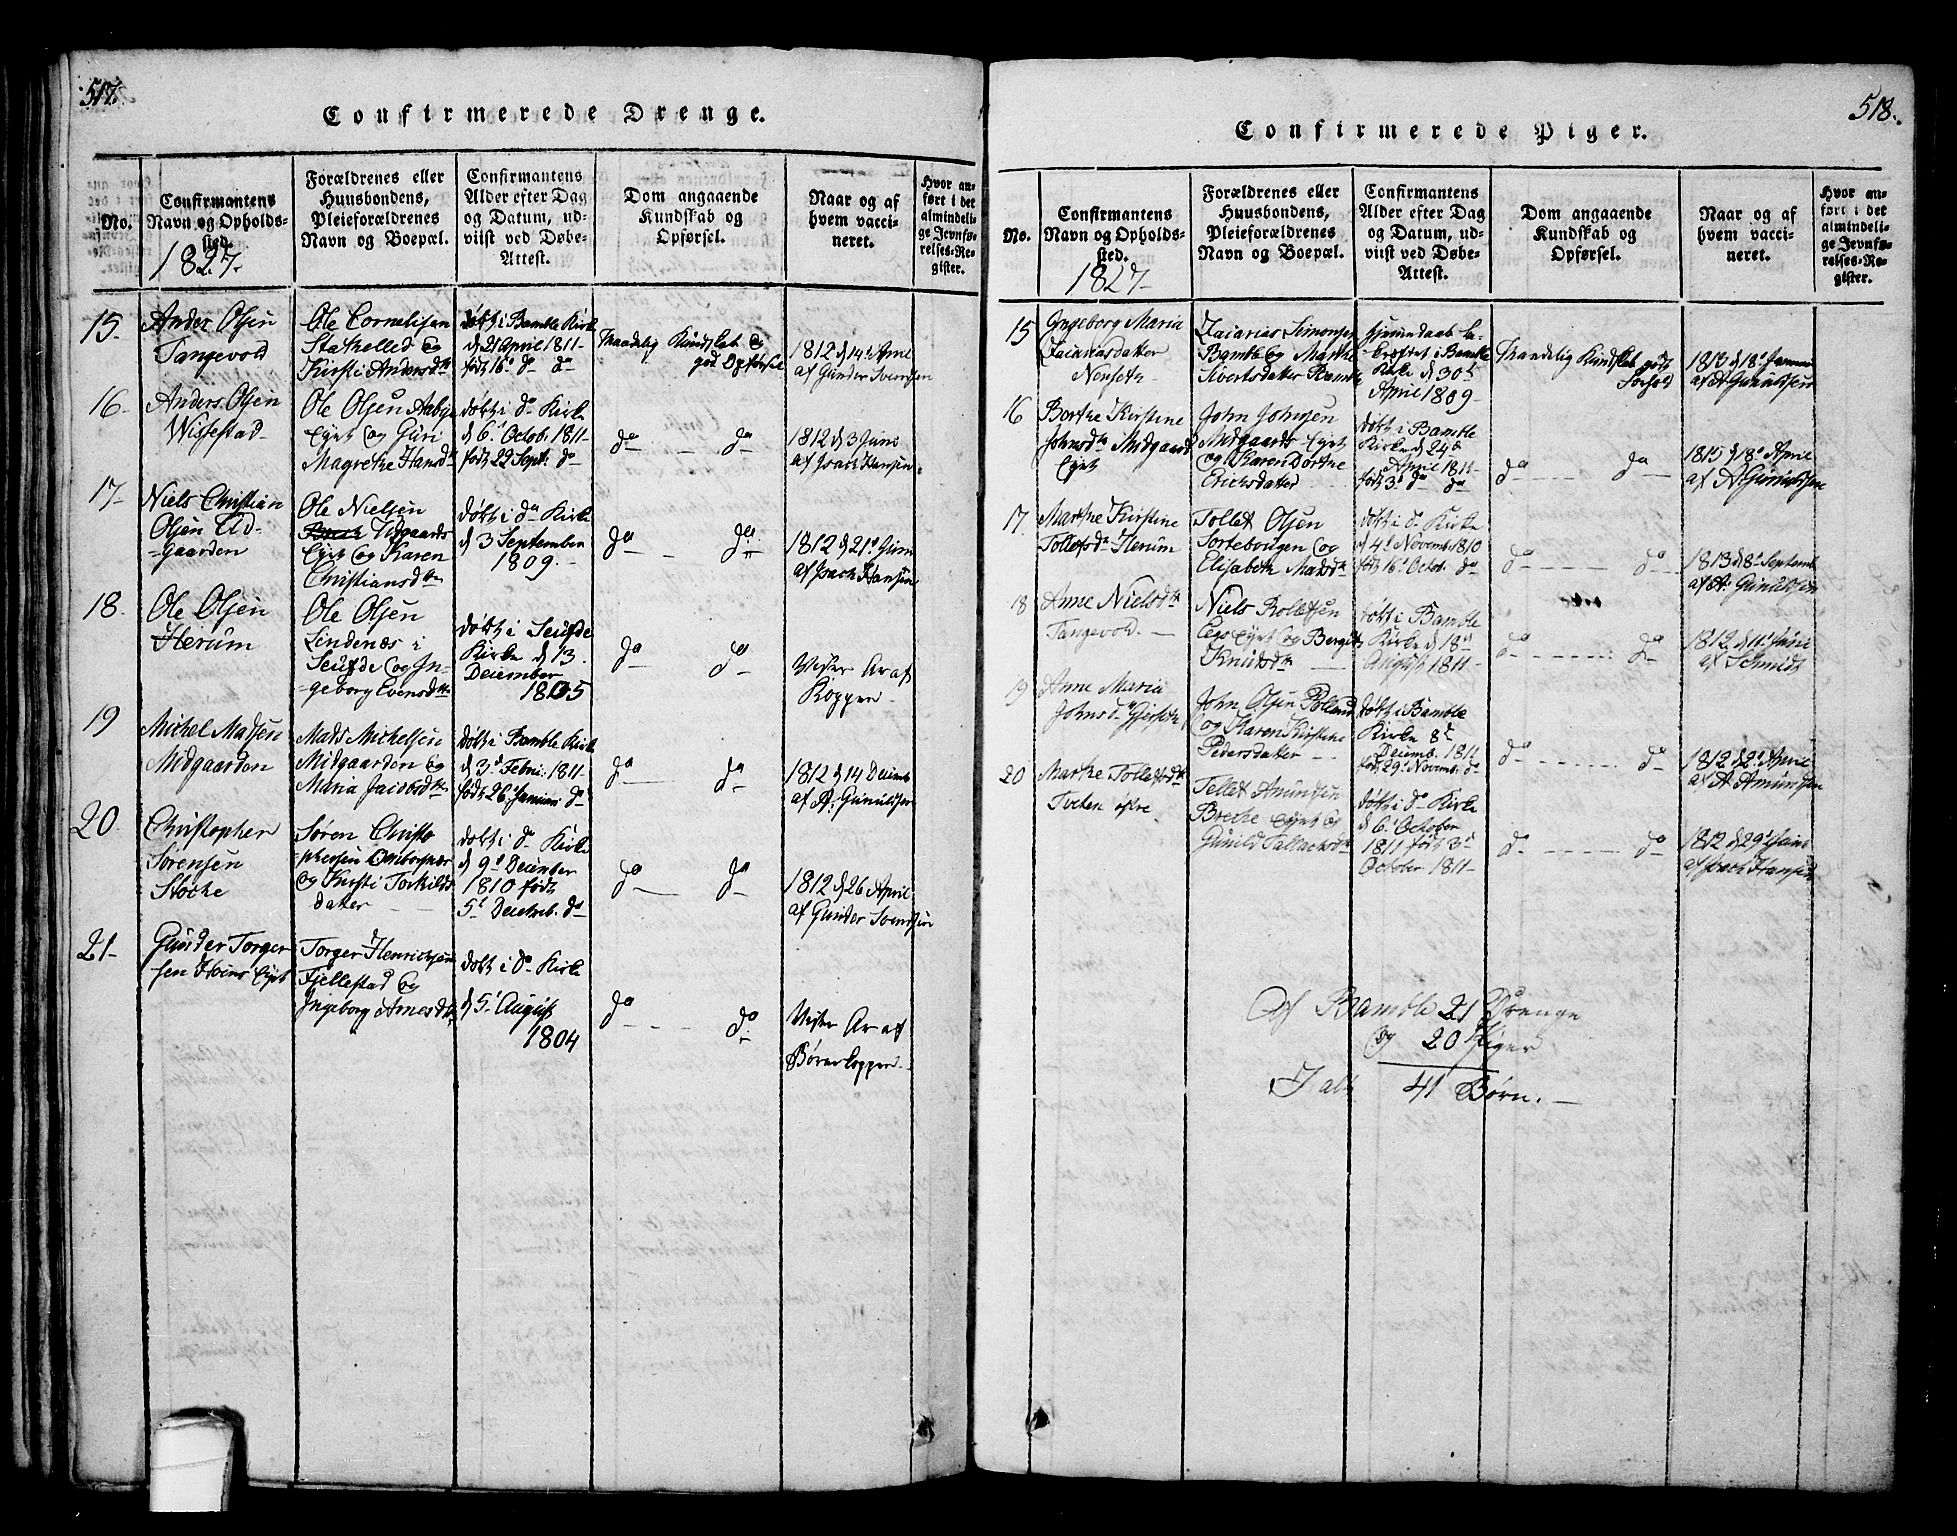 517.
Confirmerede Drenge.
No.
Confirmantens
Navn og Opholds-
sted.
1827.
Forældrenes eller
Huusbondens,
Pleieforældrenes
Navn og Boepæl.
Confirmantens
Alder efter Dag
og Datum, ud-
viist ved Døbe-
Attest.
Dom angaaende
Kundskab og
Opførsel.
Naar og af
hvem vacci-
neret.
Hvor an-
ført i det
almindeli-
ge Jevnfø-
relses-Re-
gister.
15.
Anders Olsen
Tangevold
Ole Cornelisen
Stathelled og
Kirsti Andersdtr
døbt i Bamble Kirke
d 21 April 1811
født 16d do do
Taadelig Kundskab og
god Opførsel
1812 d 14 April
af Gunder Svendsen
16
Anders Olsen
Wissestad
Ole Olsen Aabye
Eyet og Guri
Magrethe Hansdtr
døbt i do Kirke
d 6 Octob. 1811
født 22 Sept. do
do do
1812 d 3 Juni
af Isach Hansen
17
Niels Christian
Olsen Ud-
gaarden
Ole Nielsen
Udgaards
Eyet og Karen
Christiansdtr
døbt i do Kirke
d 3 September
1809.
do do
1812 d 21 Juni
af Isach Hansen
18.
Ole Olsen
Herum
Ole Olsen
Lindenæs i
Seufde og In-
geborg Evensdtr
døbt i Seufde
Kirke d 13
December
1805
do do
Viser Ar af
Kopper
19
Michel Madsen
Midgaarden
Mads Michelsen
Midgaarden og
Maria Jacobsdtr
døbt i Bamble Kirke
d 3d Febru. 1811
født 26 Januar do
do do
1812 d 14 Decemb
af A. Gunuldsen
20.
Christopher
Sørensen
Stocke
Søren Christo
phersen
og Kirsti Torkilds
datter
døbt i do Kirke
d 9d December
1810 født
5d Decemb. do
do do
1812 d 26 April
af Gunder Svendsen
21
Gunder Torger
sen Hvins Eyet
Torger Henrichsen
Fjellestad og
Ingeborg Arnesdtr
døbt i do Kirke
d 5 August
1804
do do
Viser Ar af
Børnekopper
518.
Confirmerede Piger.
No.
Confirmantens
Navn og Opholds-
sted.
1827
Forældrenes eller
Huusbondens,
Pleieforældrenes
Navn og Boepæl.
Confirmantens
Alder efter Dag
og Datum, ud-
viist ved Døbe-
Attest.
Dom angaaende
Kundskab og
Opførsel.
Naar og af
hvem vacci-
neret.
Hvor an-
ført i det
almindeli-
ge Jevnfø-
relses-Re-
gister.
15
Ingeborg Maria
Zachariasdatter
Nenseth
Zacarias Simonsen
Bamble og Marthe
Sivertsdatter Bamble
hjemmedaab be-
kræftet i Bamble
Kirke d 30
April 1809
Taadelig Kundskab godt
Forhold
1813 d 18 Januar
af A Gunuldsen
16
Berthe Kirstine
Johnsdtr Midgaards
Eyet
John Johnsen
Midgaards Eyet
og Karen Dorthe
Erichsdatter
døbt i Bamble
Kirke d 24
April 1811
født 3d do do
do do
1815 d 18 April
af A Gunuldsen
17
Marthe Kirstine
Tollefsdtr Herum
Tollef Olsen
Tortebougen og
Elisabeth Madsdtr
døbt i do Kirke
d 4 Novemb. 1810
født 16 Octob. do
do do
1813 d 8 Septemb
af A. Gunuldsen
18
Anne Nielsdtr
Tangevold.
Niels Rollefsen
Eyet og Bergit
Knudsdtr
døbt i Bamble
Kirke d 18
August 1811
do do
1812 d 11 Juni
af Schmidt
19
Anne Maria
Johnsd
John Olsen
og Karen Kirstine
Pedersdatter
døbt i Bamble
Kirke 8
Decemb. 1811
født 29 Novemb. do
do do
1812 d 2 April
af A Amundsen
20
Marthe Tollefsdtr
Tveten øfre
Tellef Amundsen
Brecke Eyet og
Gunild Tallachsdtr
døbt i do Kirke
d 6 October
1811 født 3d
October 1811
do do
1812 d 29 Juni
af Isach Hansen
Af Bamble 21 Drenge
og 20 Piger
I alt 41 Børn.